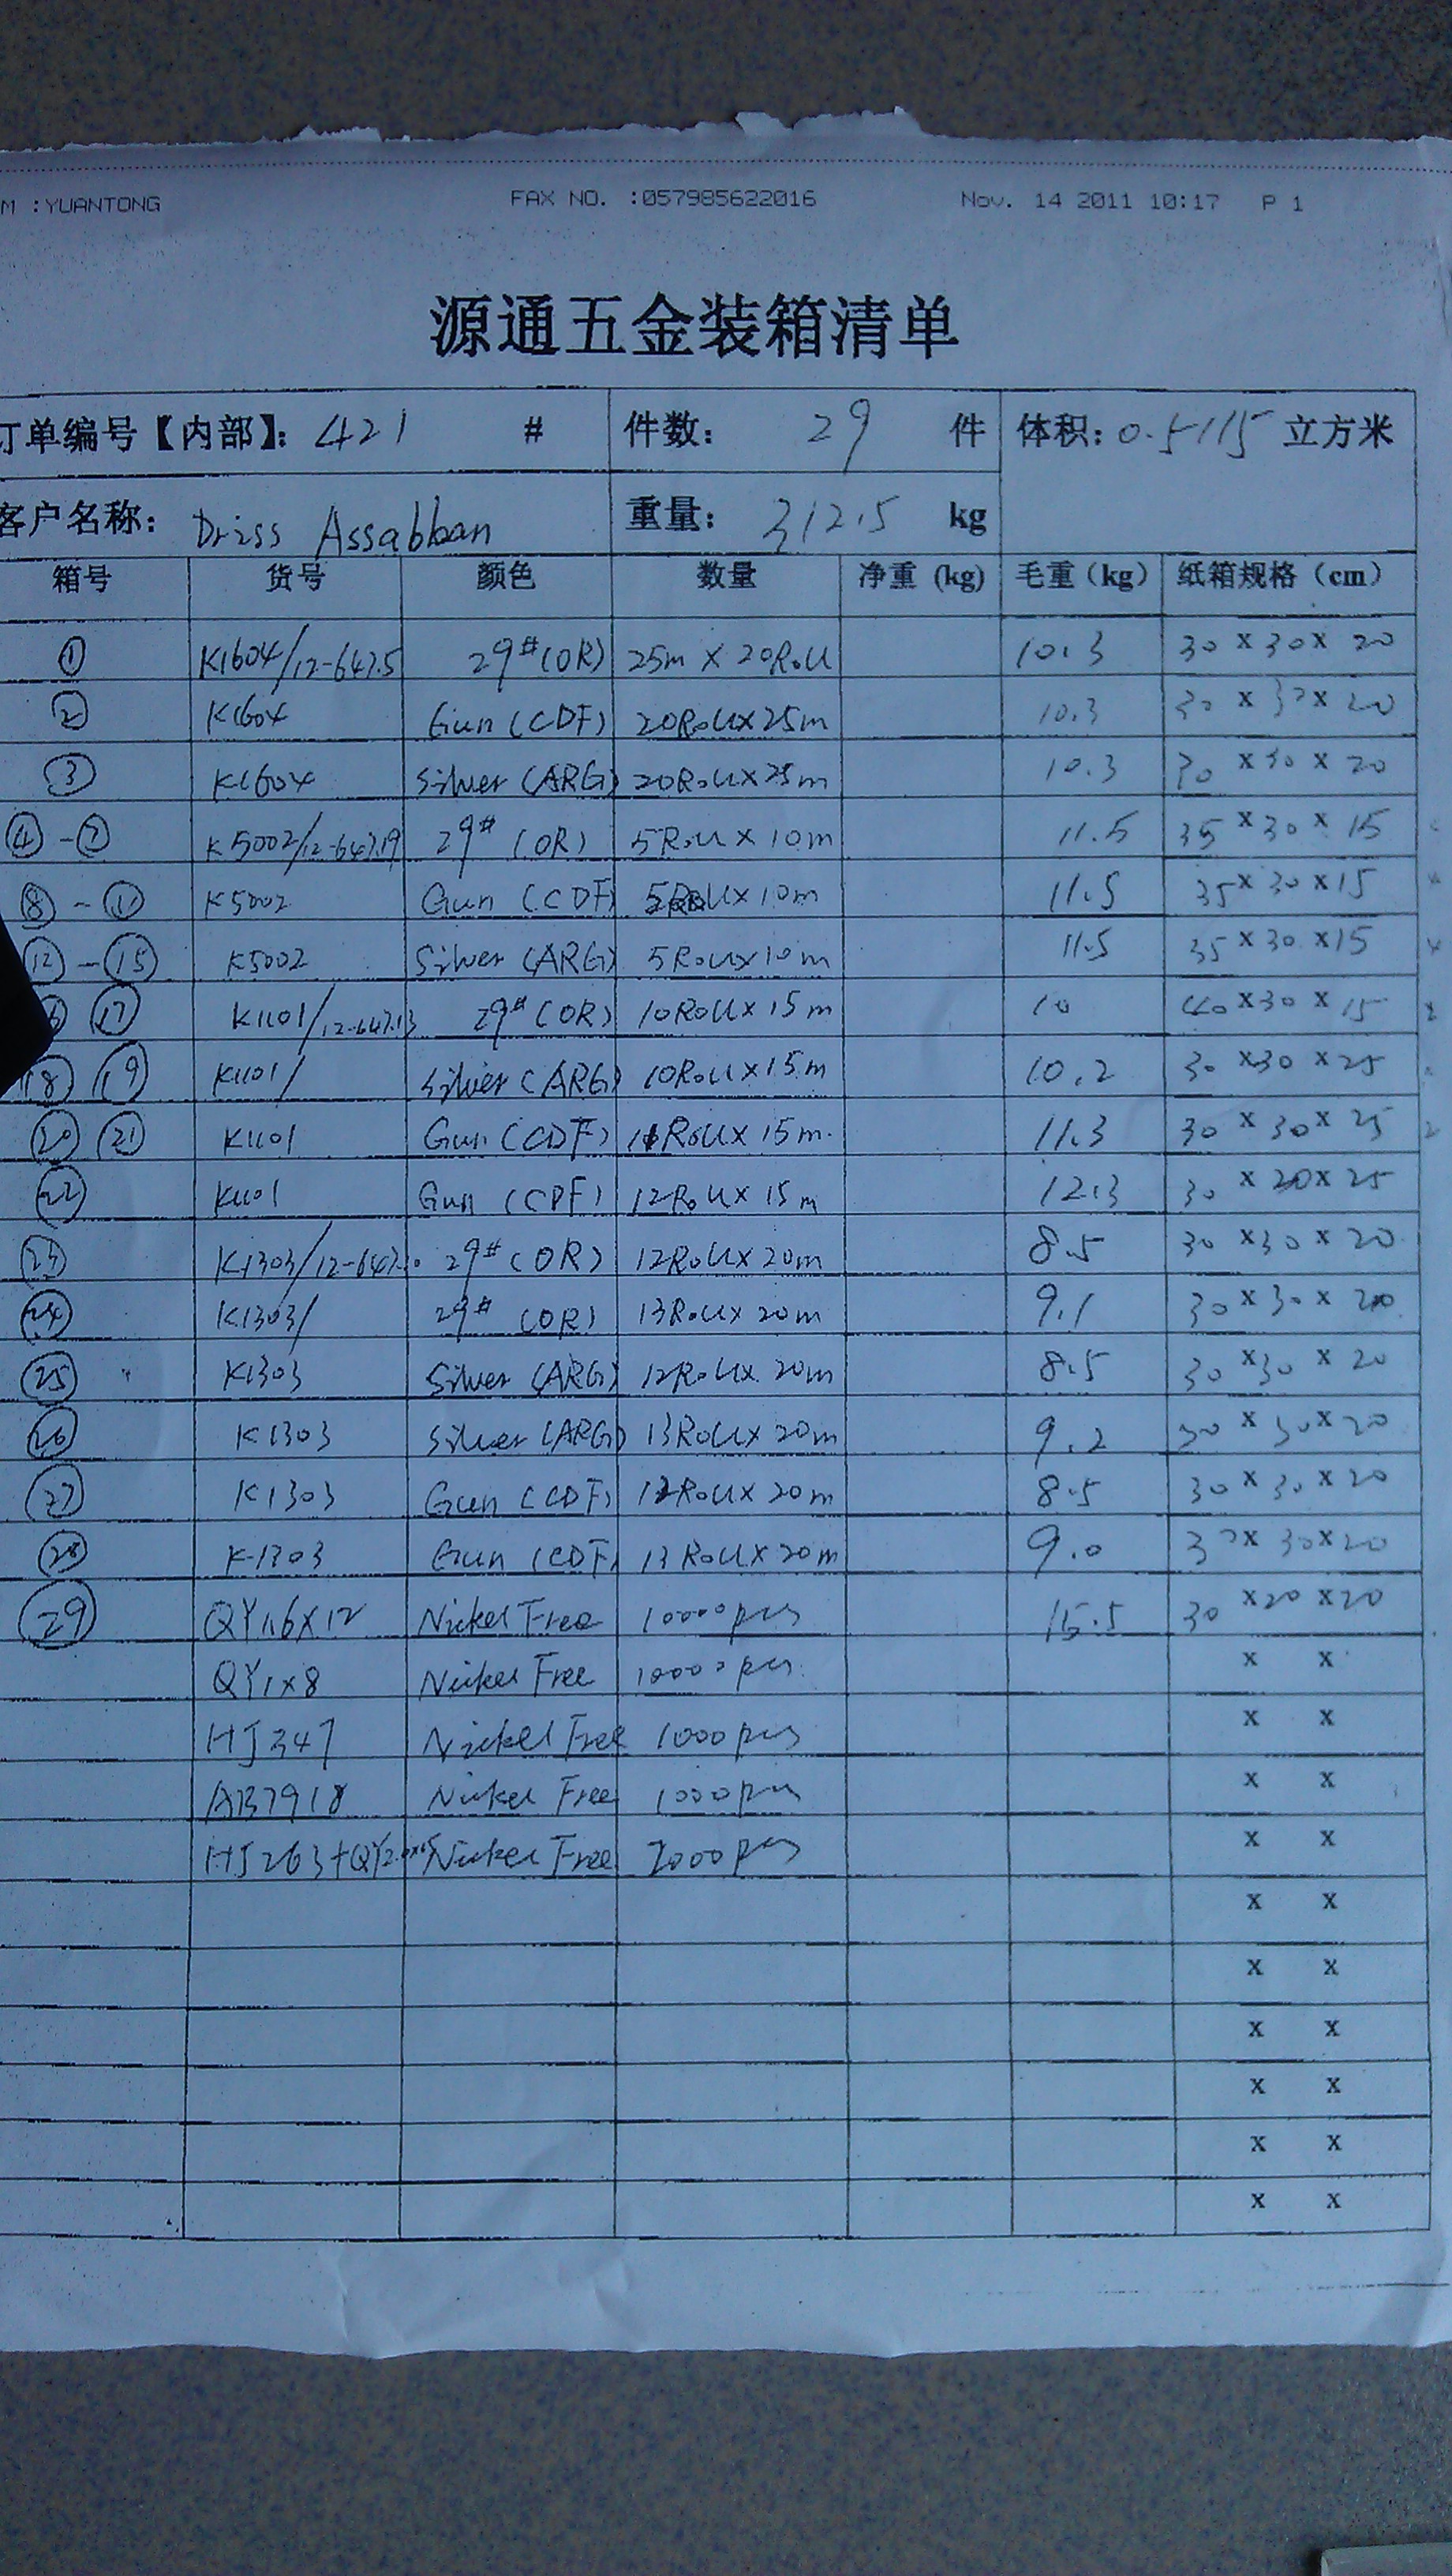 M :YUANTONG FAX NO. :057985622016 Nov. 14 2011 10:17 P 1
源通五金装箱清单
订单编号【内部】: 421 # 件数: 29 件 体积: 0.5115 立方米
客户名称: Driss Assabban 重量: 312.5 kg
箱号 货号 颜色 数量 净重 (kg) 毛重 (kg) 纸箱规格 (cm)
① K1604/12-647.5 29# (OR) 25m X 20Roll 10.3 30 x 30 x 20
② K1604 Gun (CDF) 20Roll X 25m 10.3 30 x 30 x 20
③ K1604 Silver (ARG) 20Roll X 25m 10.3 30 x 30 x 20
④ - ⑦ K5002/12-647.19 29# (OR) 5Roll X 10m 11.5 35 x 30 x 15
⑧ - ⑪ K5002 Gun (CDF) 5Roll X 10m 11.5 35 x 30 x 15
⑫ - ⑮ K5002 Silver (ARG) 5Roll X 10m 11.5 35 x 30 x 15
⑰ K1101/12-647.13 29# (OR) 10Roll X 15m 10 40 x 30 x 15
⑱ ⑲ K1101/ Silver (ARG) 10Roll X 15m 10.2 30 x 30 x 25
⑳ ㉑ K1101 Gun (CDF) 11Roll X 15m. 11.3 30 x 30 x 25
㉒ K1101 Gun (CDF) 12Roll X 15m 12.3 30 x 20 x 25
㉓ K1303/ 29# (OR) 12Roll X 20m 8.5 30 x 30 x 20
㉔ K1303/ 29# (OR) 13Roll X 20m 9.1 30 x 30 x 20
㉕ K1303 Silver (ARG) 12Roll X 20m 8.5 30 x 30 x 20
㉖ K1303 Silver (ARG) 13Roll X 20m 9.2 30 x 30 x 20
㉗ K1303 Gun (CDF) 12Roll X 20m 8.5 30 x 30 x 20
㉘ K1303 Gun (CDF) 13Roll X 20m 9.0 30 x 30 x 20
㉙ QY1.6X12 Nickel Free 10000pcs 15.5 30 x 20 x 20
QY1x8 Nickel Free 10000pcs x x
HJ347 Nickel Free 1000pcs x x
AB7918 Nickel Free 1000pcs x x
Nickel Free 2000pcs x x
x x
x x
x x
x x
x x
x x